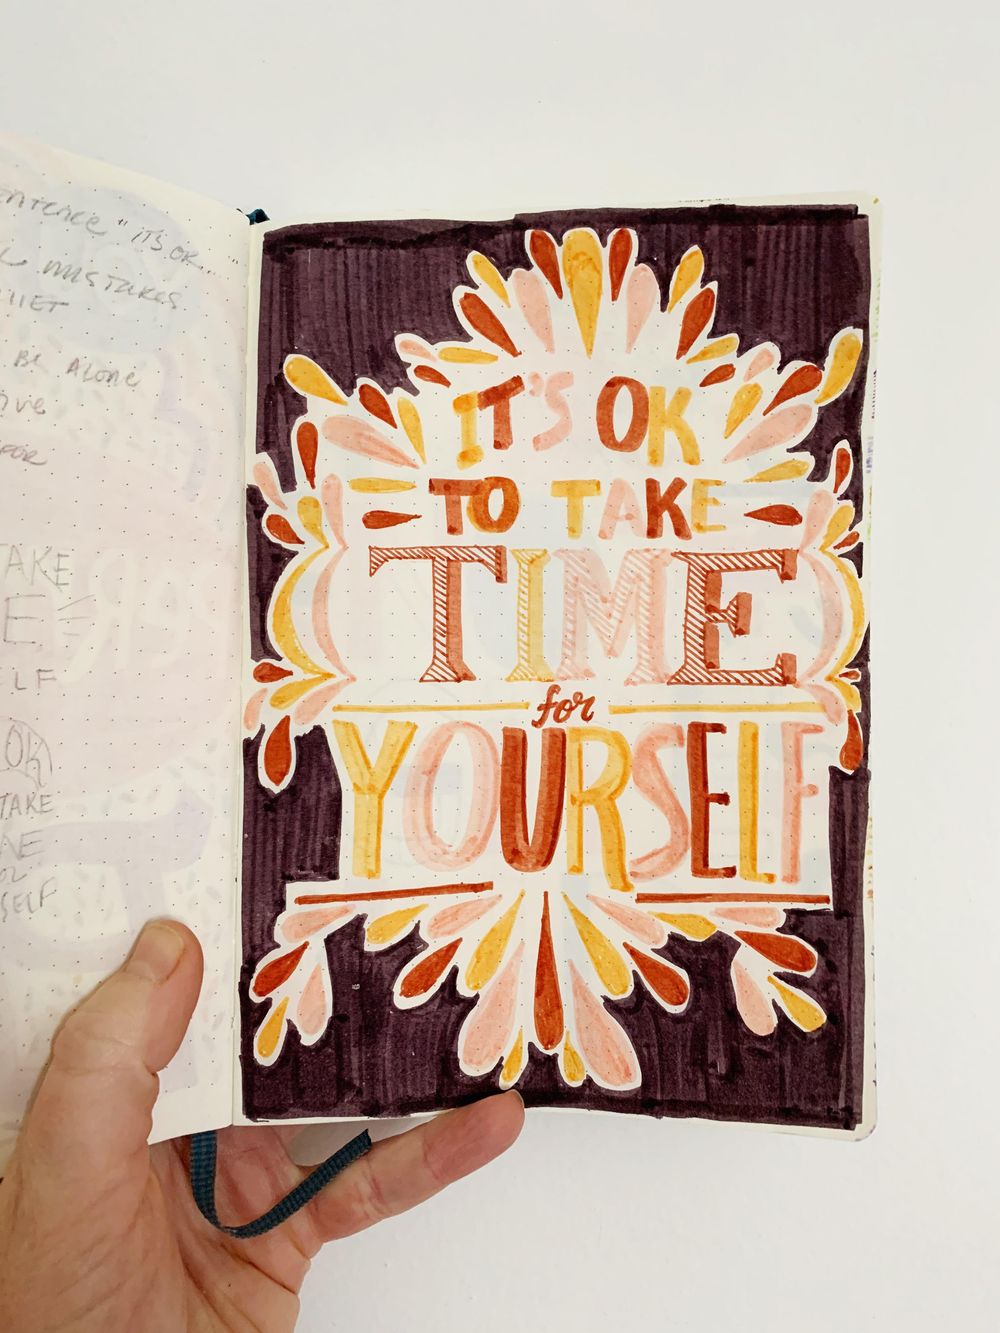 "IT'S OK
MISTAKES
BE ALONE
FOR
TAKE
E
ELF
OK
TAKE
SELF
IT'S OK
TO TAKE
TIME
for
YOURSELF